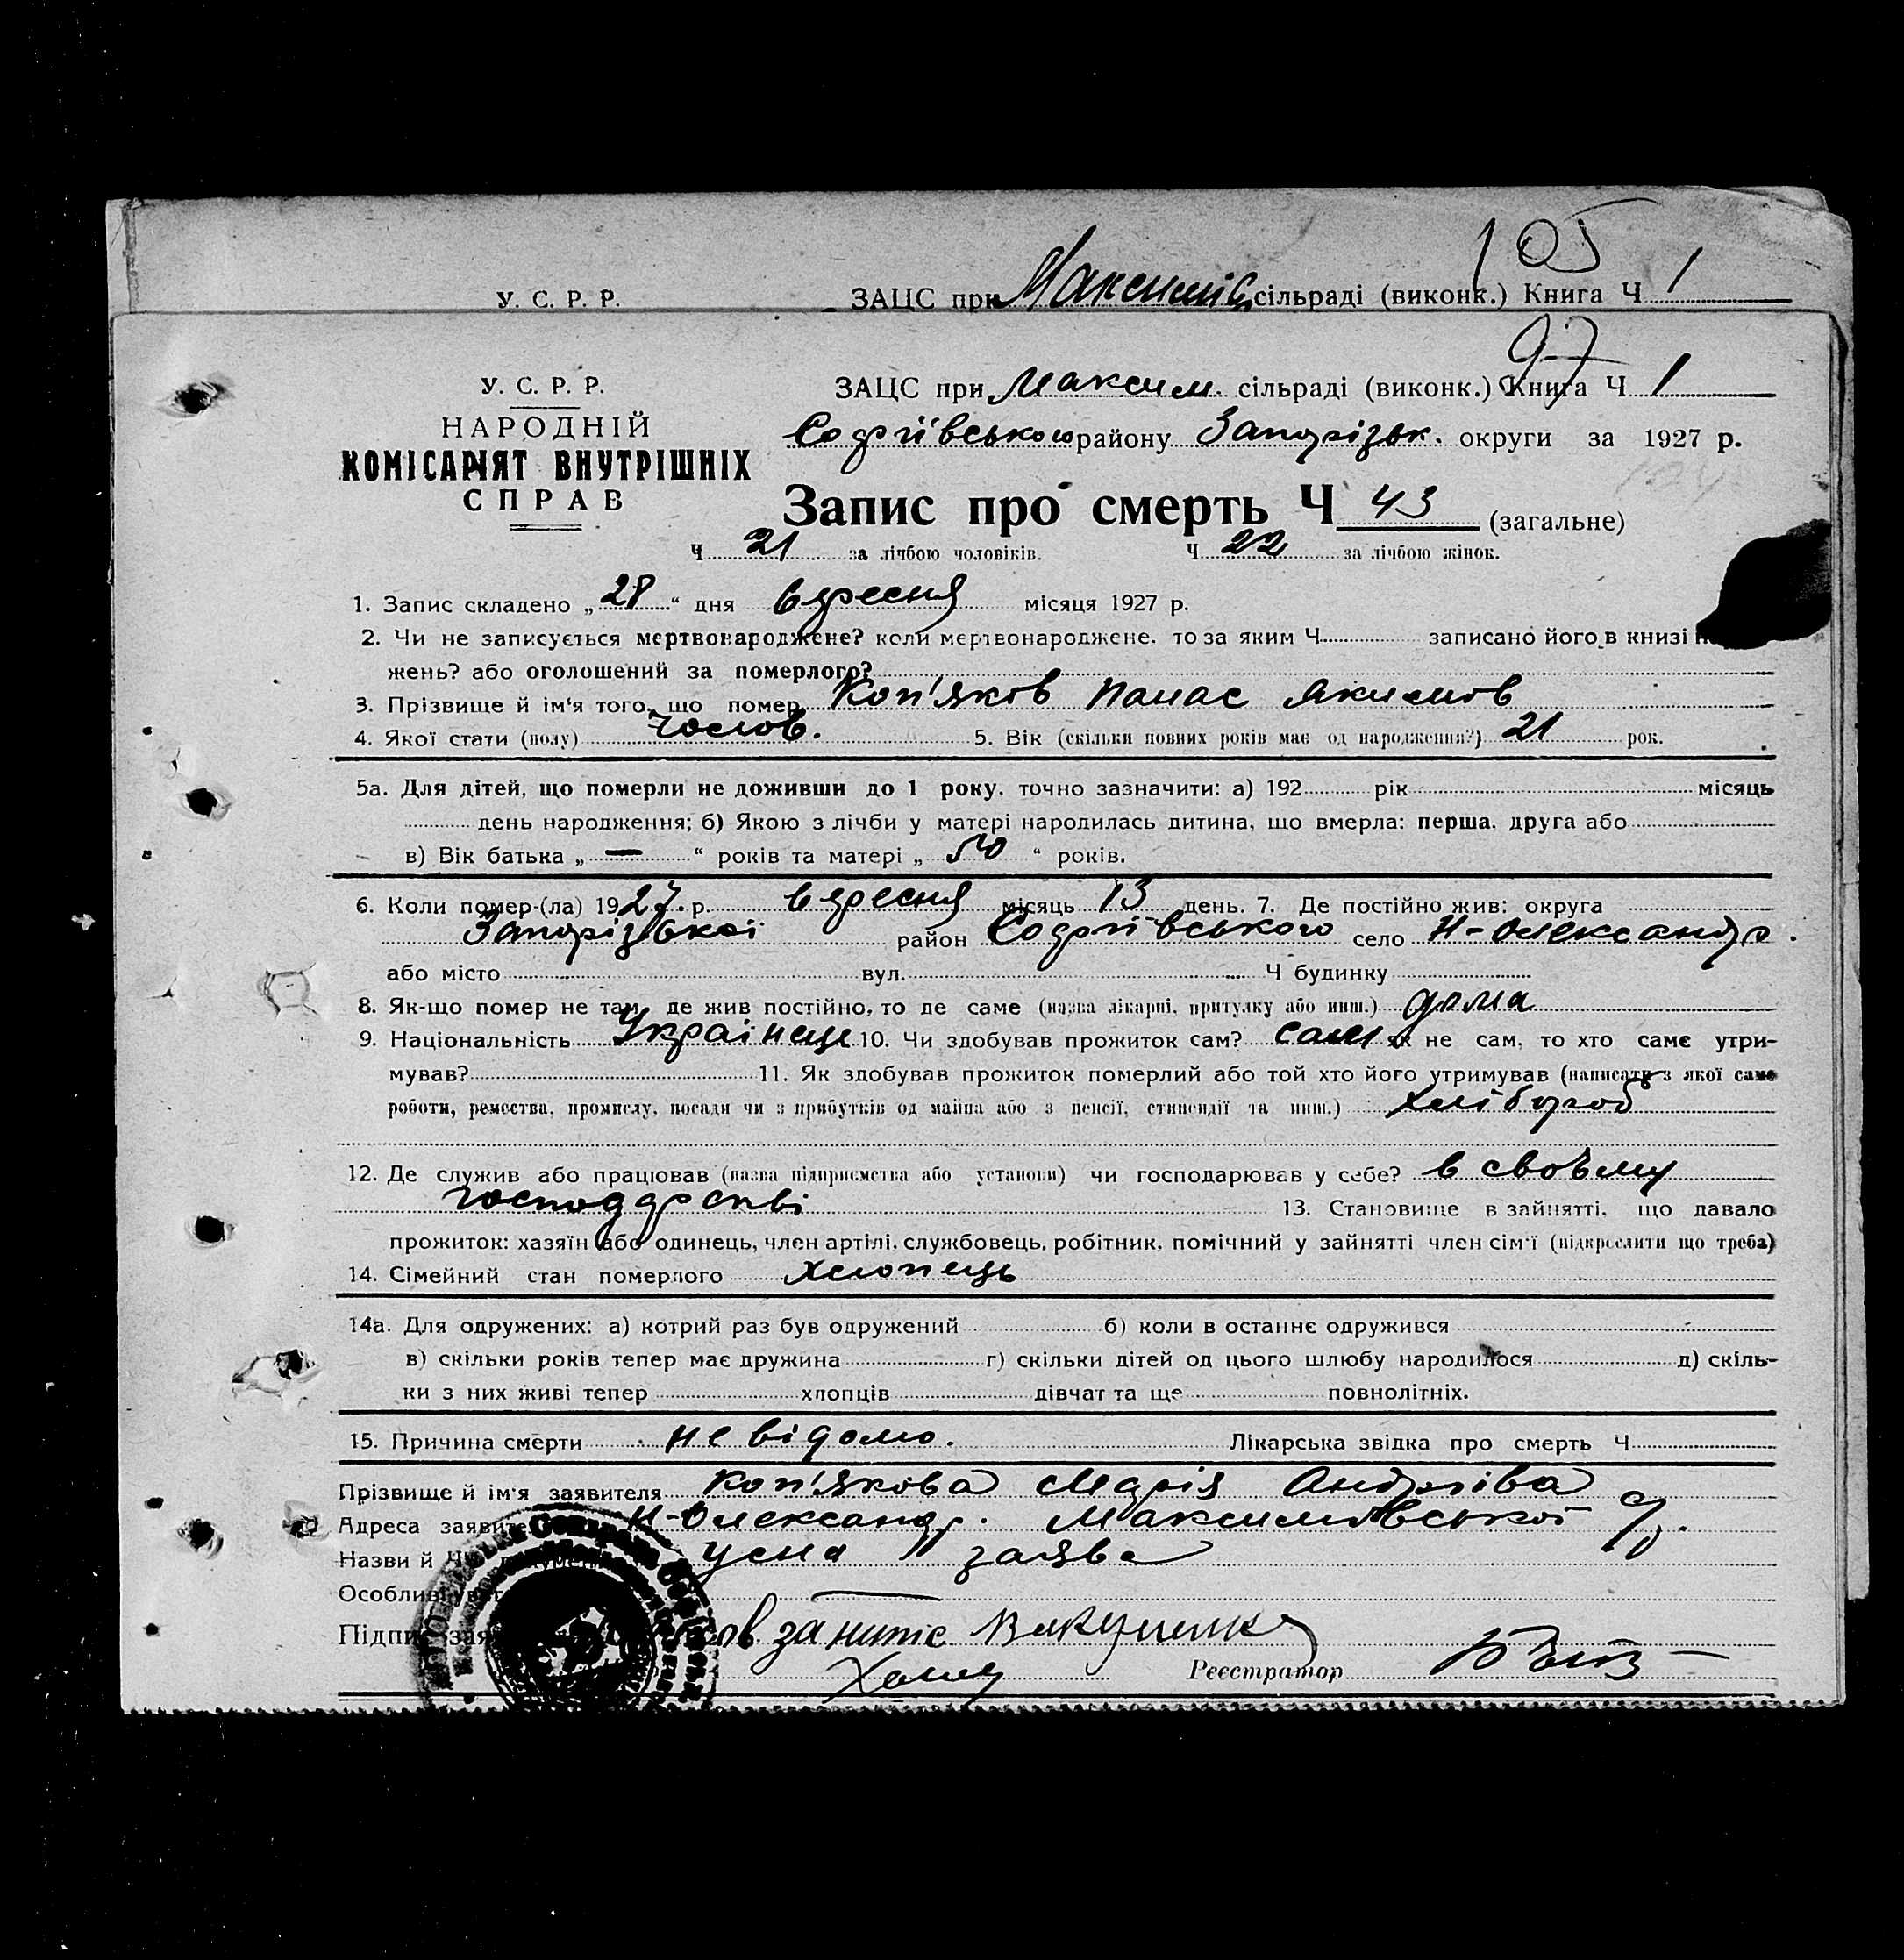 105
У. С. Р. Р. ЗАЦС при сільраді (виконк.) Книга Ч 1
97
У. С. Р. Р. ЗАЦС при Максим. сільраді (виконк.) Книга Ч 1
НАРОДНІЙ Софіївського району Запорізьк. округи за 1927 р.
КОМІСАРІЯТ ВНУТРІШНІХ
СПРАВ
Запис про смерть Ч 43 (загальне)
Ч 21 за лічбою чоловіків. Ч 22 за лічбою жінок.
1. Запис складено „ 28 “ дня вересня місяця 1927 р.
2. Чи не записується мертвонароджене? коли мертвонароджене, то за яким Ч записано його в книзі
жень? або оголошений за померлого?
3. Прізвище й ім'я того, що помер Коп'яков Панас Якимов
4. Якої стати (полу) чолов. 5. Вік (скільки повних років має од народження?) 21 рок.
5а. Для дітей, що померли не доживши до 1 року, точно зазначити: а) 192 рік місяць
день народження; б) Якою з лічби у матері народилась дитина, що вмерла: перша, друга або
в) Вік батька „ — “ років та матері „ 50 “ років.
6. Коли помер-(ла) 1927. р. вересня місяць 13 день. 7. Де постійно жив: округа
Запорізької район Софіївського село Н-Олександр.
або місто вул. Ч будинку
8. Як-що помер не там, де жив постійно, то де саме (назва лікарні, притулку або инш.) дома
9. Національність Українець 10. Чи здобував прожиток сам? сам як не сам, то хто саме утри-
мував? 11. Як здобував прожиток померлий або той хто його утримував (написати з якої саме
роботи, ремества, промислу, посади чи з прибутків од майна або з пенсії, стипендії та инш.) хлібороб
12. Де служив або працював (назва підприємства або установи) чи господарював у себе? в своъму
господарстві 13. Становище в зайнятті, що давало
прожиток: хазяїн або одинець, член артілі, службовець, робітник, помічний у зайнятті член сім'ї (підкреслити що треба)
14. Сімейний стан померлого хлопець
14а. Для одружених: а) котрий раз був одружений б) коли в останнє одружився
в) скільки років тепер має дружина г) скільки дітей од цього шлюбу народилося д) скіль-
ки з них живі тепер хлопців дівчат та ще повнолітніх.
15. Причина смерти не відомо. Лікарська звідка про смерть Ч
Прізвище й ім'я заявителя Коп'якова Марія Андріїва
Адреса Н-Олександр. Максимовської с/р.
Назви й усна заява
Особливі
Підпис
Реєстратор